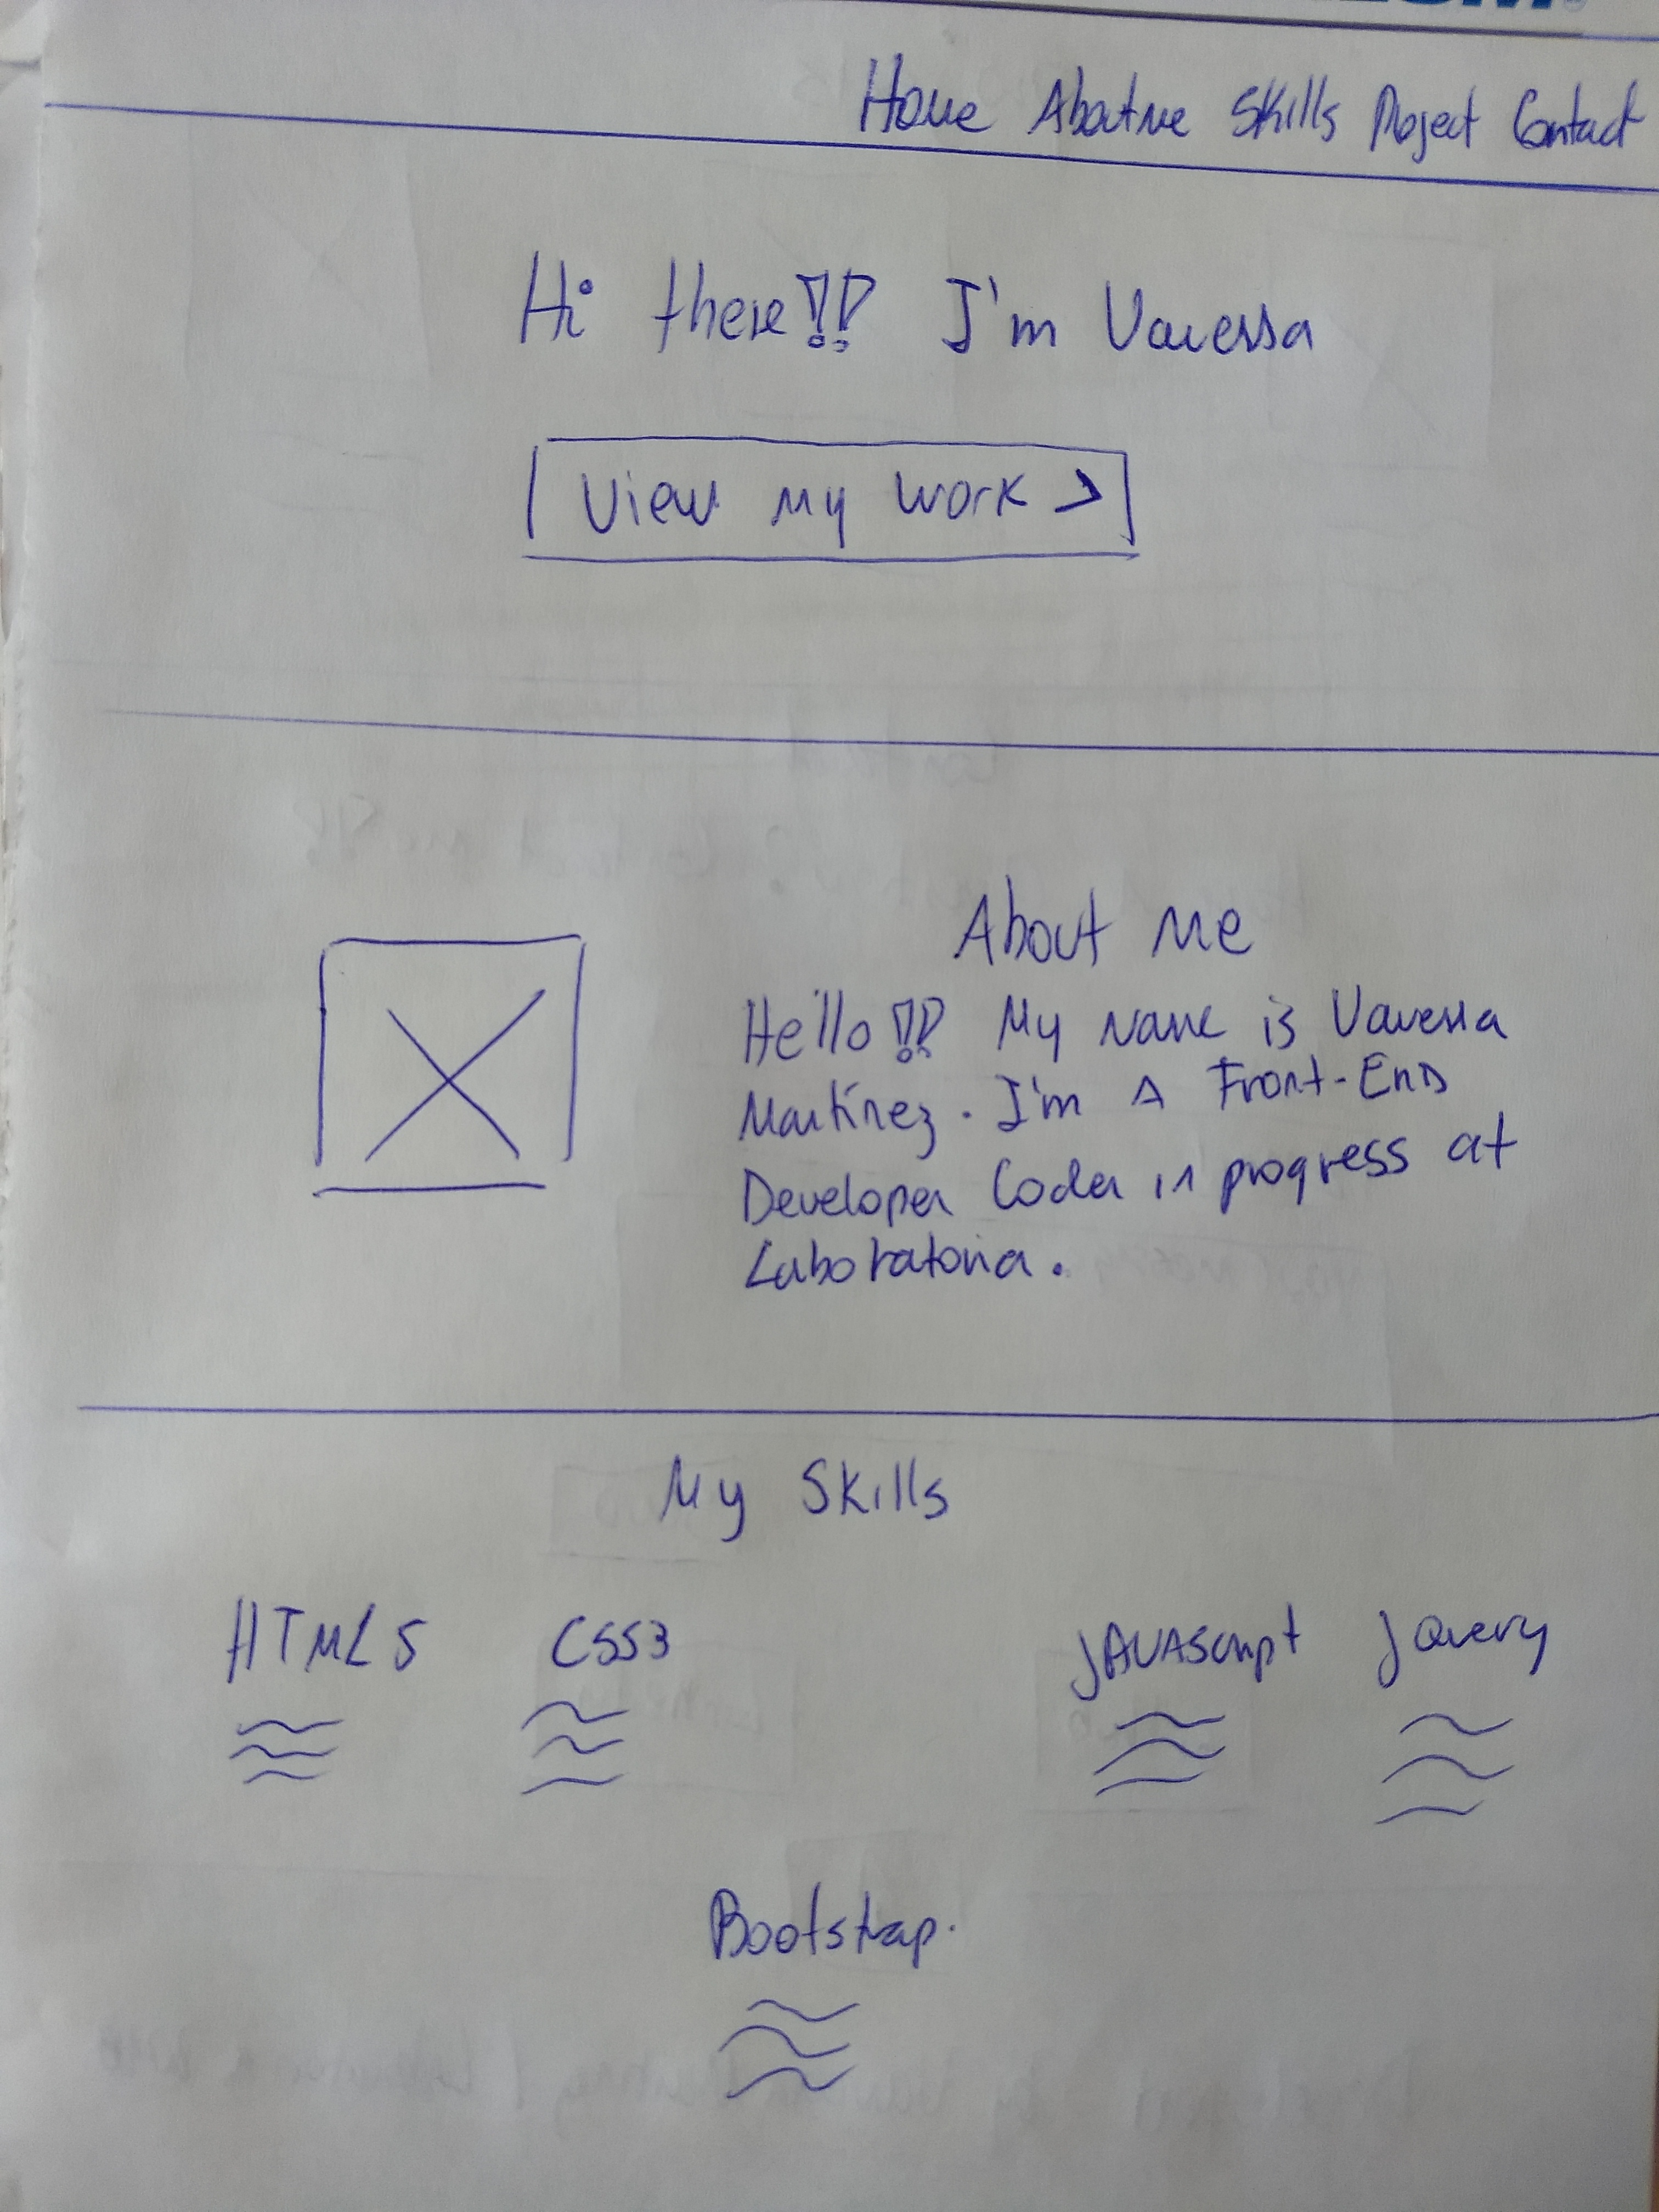 Home Aboutme Skills Project Contact
Hi there!! I'm Vanessa
View my work >
About Me
Hello!! My name is Vanessa
Martínez. I'm A Front-End
Developer Coder in progress at
Laboratoria.
My Skills
HTML5 CSS3 JAVAScript JQuery
Bootstrap.